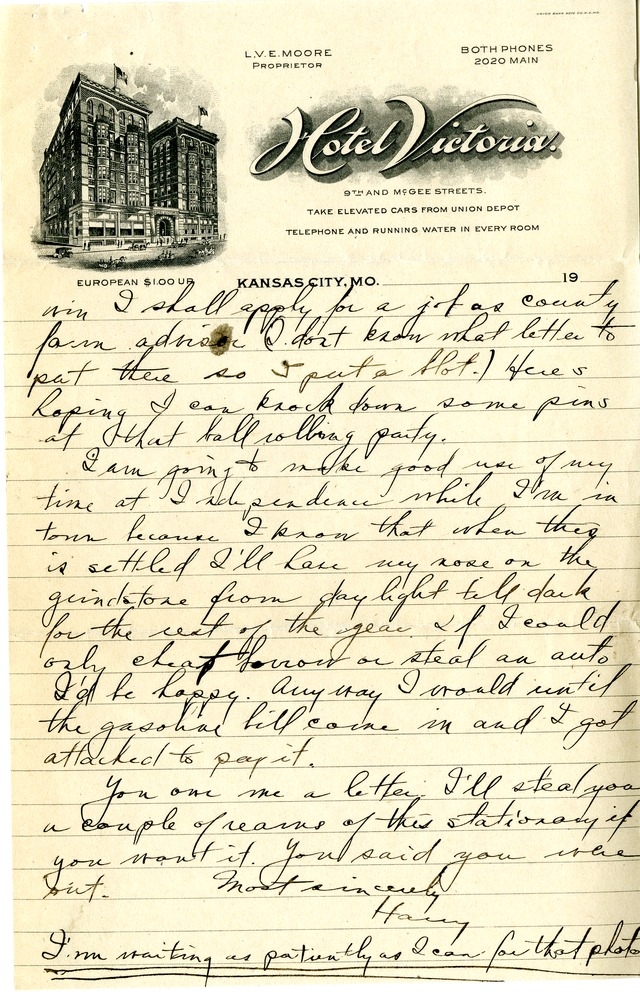 L.V.E. MOORE
PROPRIETOR
BOTH PHONES
2020 MAIN
Hotel Victoria.
9TH AND McGEE STREETS.
TAKE ELEVATED CARS FROM UNION DEPOT
TELEPHONE AND RUNNING WATER IN EVERY ROOM
EUROPEAN $1.00 UP
KANSAS CITY, MO. 19
win I shall apply for a job as county
farm advisor (I dont know what letter to
put there so I put a blot.) Here's
hoping I can knock down some pins
at that ball rolling party.
I am going to make good use of my
time at Independence while I'm in
town because I know that when this
is settled I'll have my nose on the
grindstone from daylight till dark
for the rest of the year. If I could
only cheat borrow or steal an auto
I'd be happy. Anyway I would until
the gasoline bill come in and I got
attached to pay it.
You owe me a letter. I'll steal you
a couple of reams of this stationary if
you want it. You said you were
out. Most sincerely
Harry
I'm waiting as patiently as I can for that photo